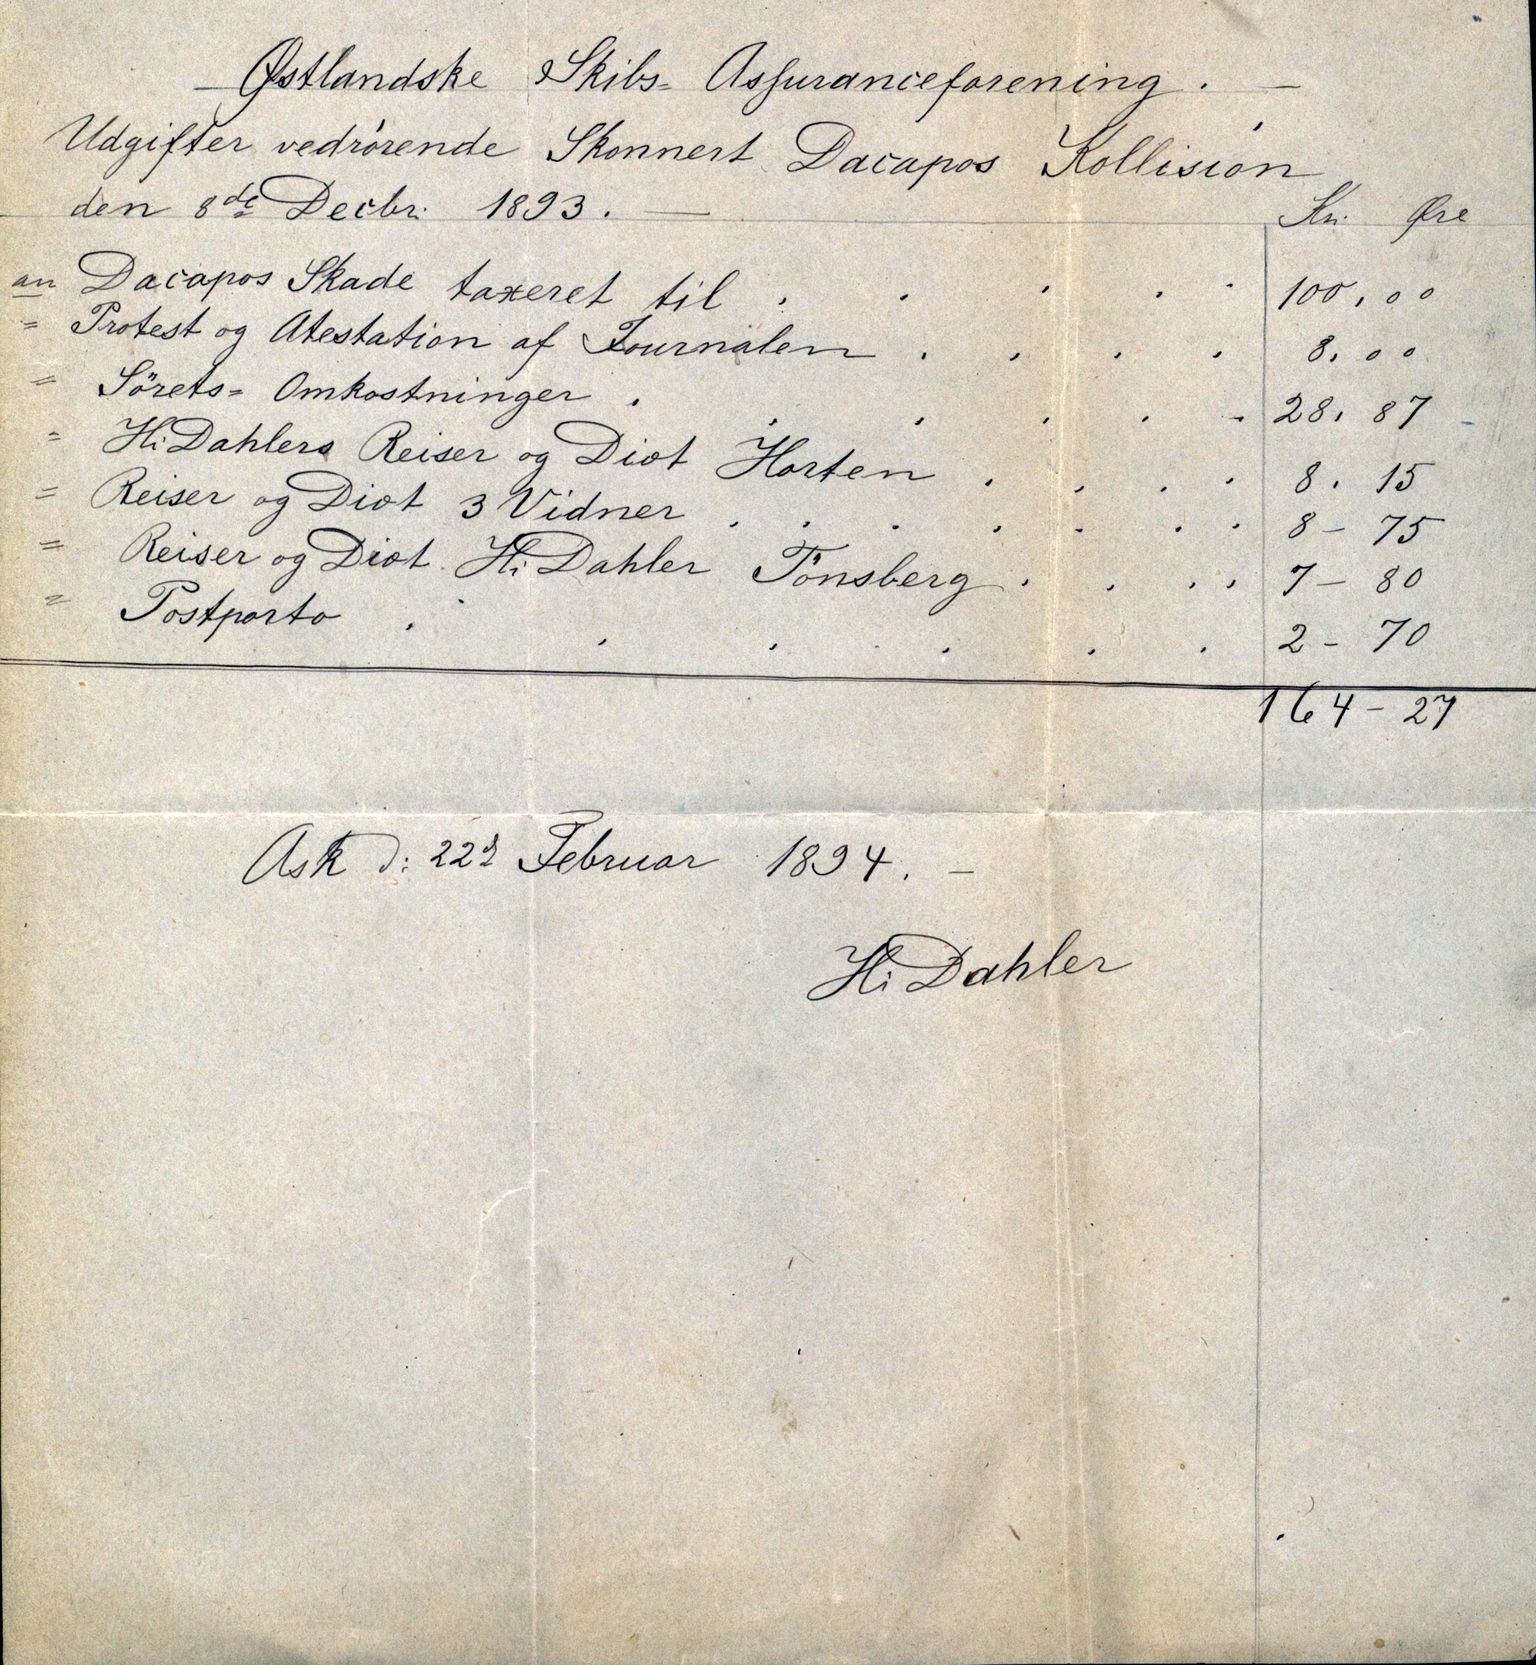 Østlandske Skibs= Assuranceforening. —
Udgifter vedrørende Skonnert Dacapos Kollision
den 8de Decbr. 1893. —
Kr. Øre
an Dacapos Skade taxeret til . . . . . 100,00
= Protest og Atestation af Journalen . . . . 8,00
= Sörets= Omkostninger . . . . . . 28, 87
= H. Dahlers Reiser og Diæt Horten . . . . 8, 15
= Reiser og Diæt 3 Vidner . . . . . . . 8 - 75
= Reiser og Diæt H. Dahler Tönsberg . . . . 7 - 80
= Postporto . . . . . . 2 - 70
164 - 27
Ask d: 22d Februar 1894. —
H. Dahler